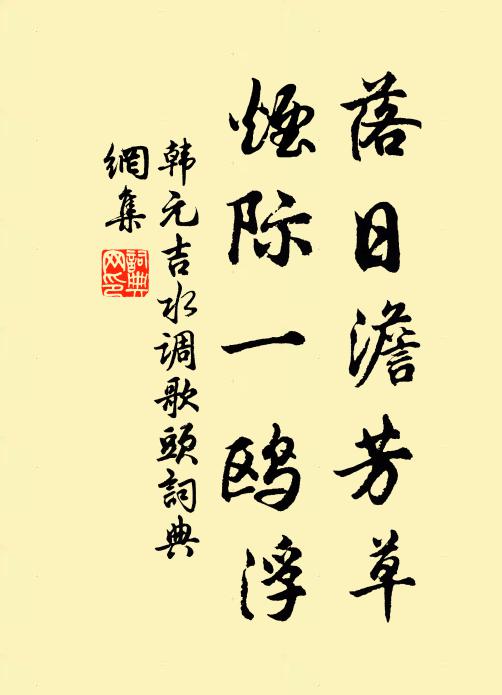 落日澹芳草
烟际一鸥浮
韩元吉水调歌頭詞典
網集
詞典网印